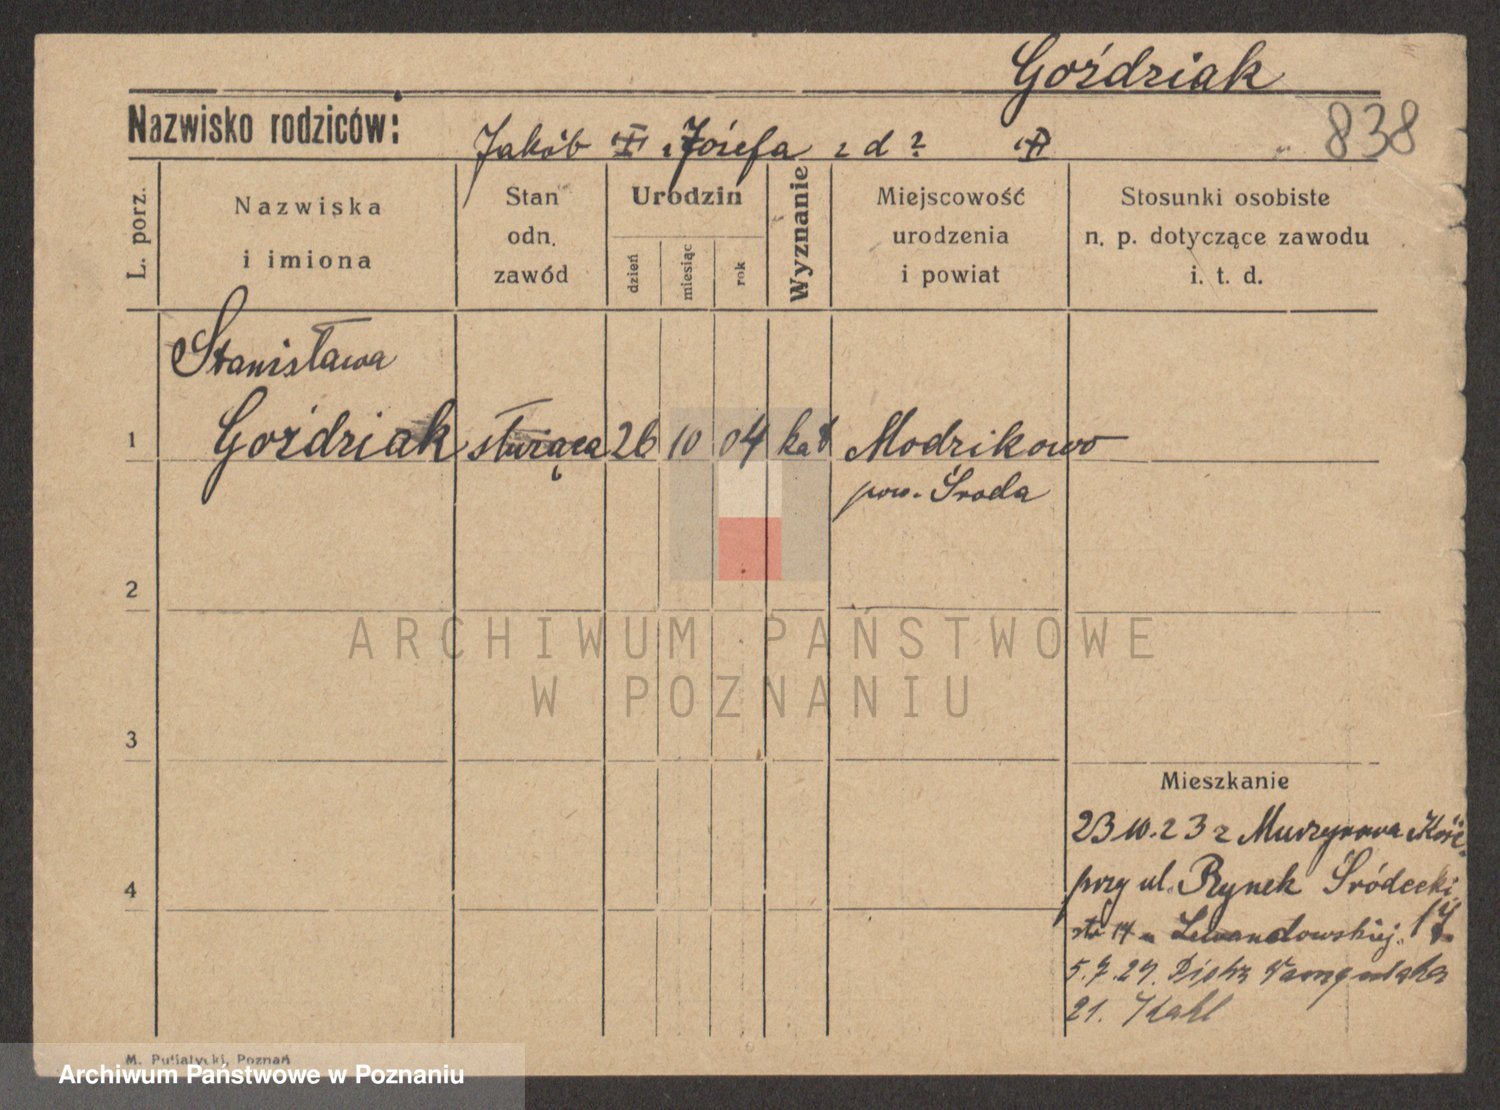 Goździak
838
Nazwisko rodziców:
Jakób i Józefa z d ?
L. porz.
Nazwiska
i imiona
Stan
odn.
zawód
Urodzin
dzień
miesiąc
rok
Wyznanie
Miejscowość
urodzenia
i powiat
Stosunki osobiste
n. p. dotyczące zawodu
i. t. d.
Stanisława
1
Goździak służąca 26 10 04 kat Modrikowo
pow. Środa
2
ARCHIWUM PAŃSTWOWE
W POZNANIU
3
Mieszkanie
23 10. 23 z Murzynowa Kość.
4
przy ul. Rynek Śródecki
17
Lewandowskiej.
21. Kahl
M. Putiatycki, Poznań
Archiwum Państwowe w Poznaniu